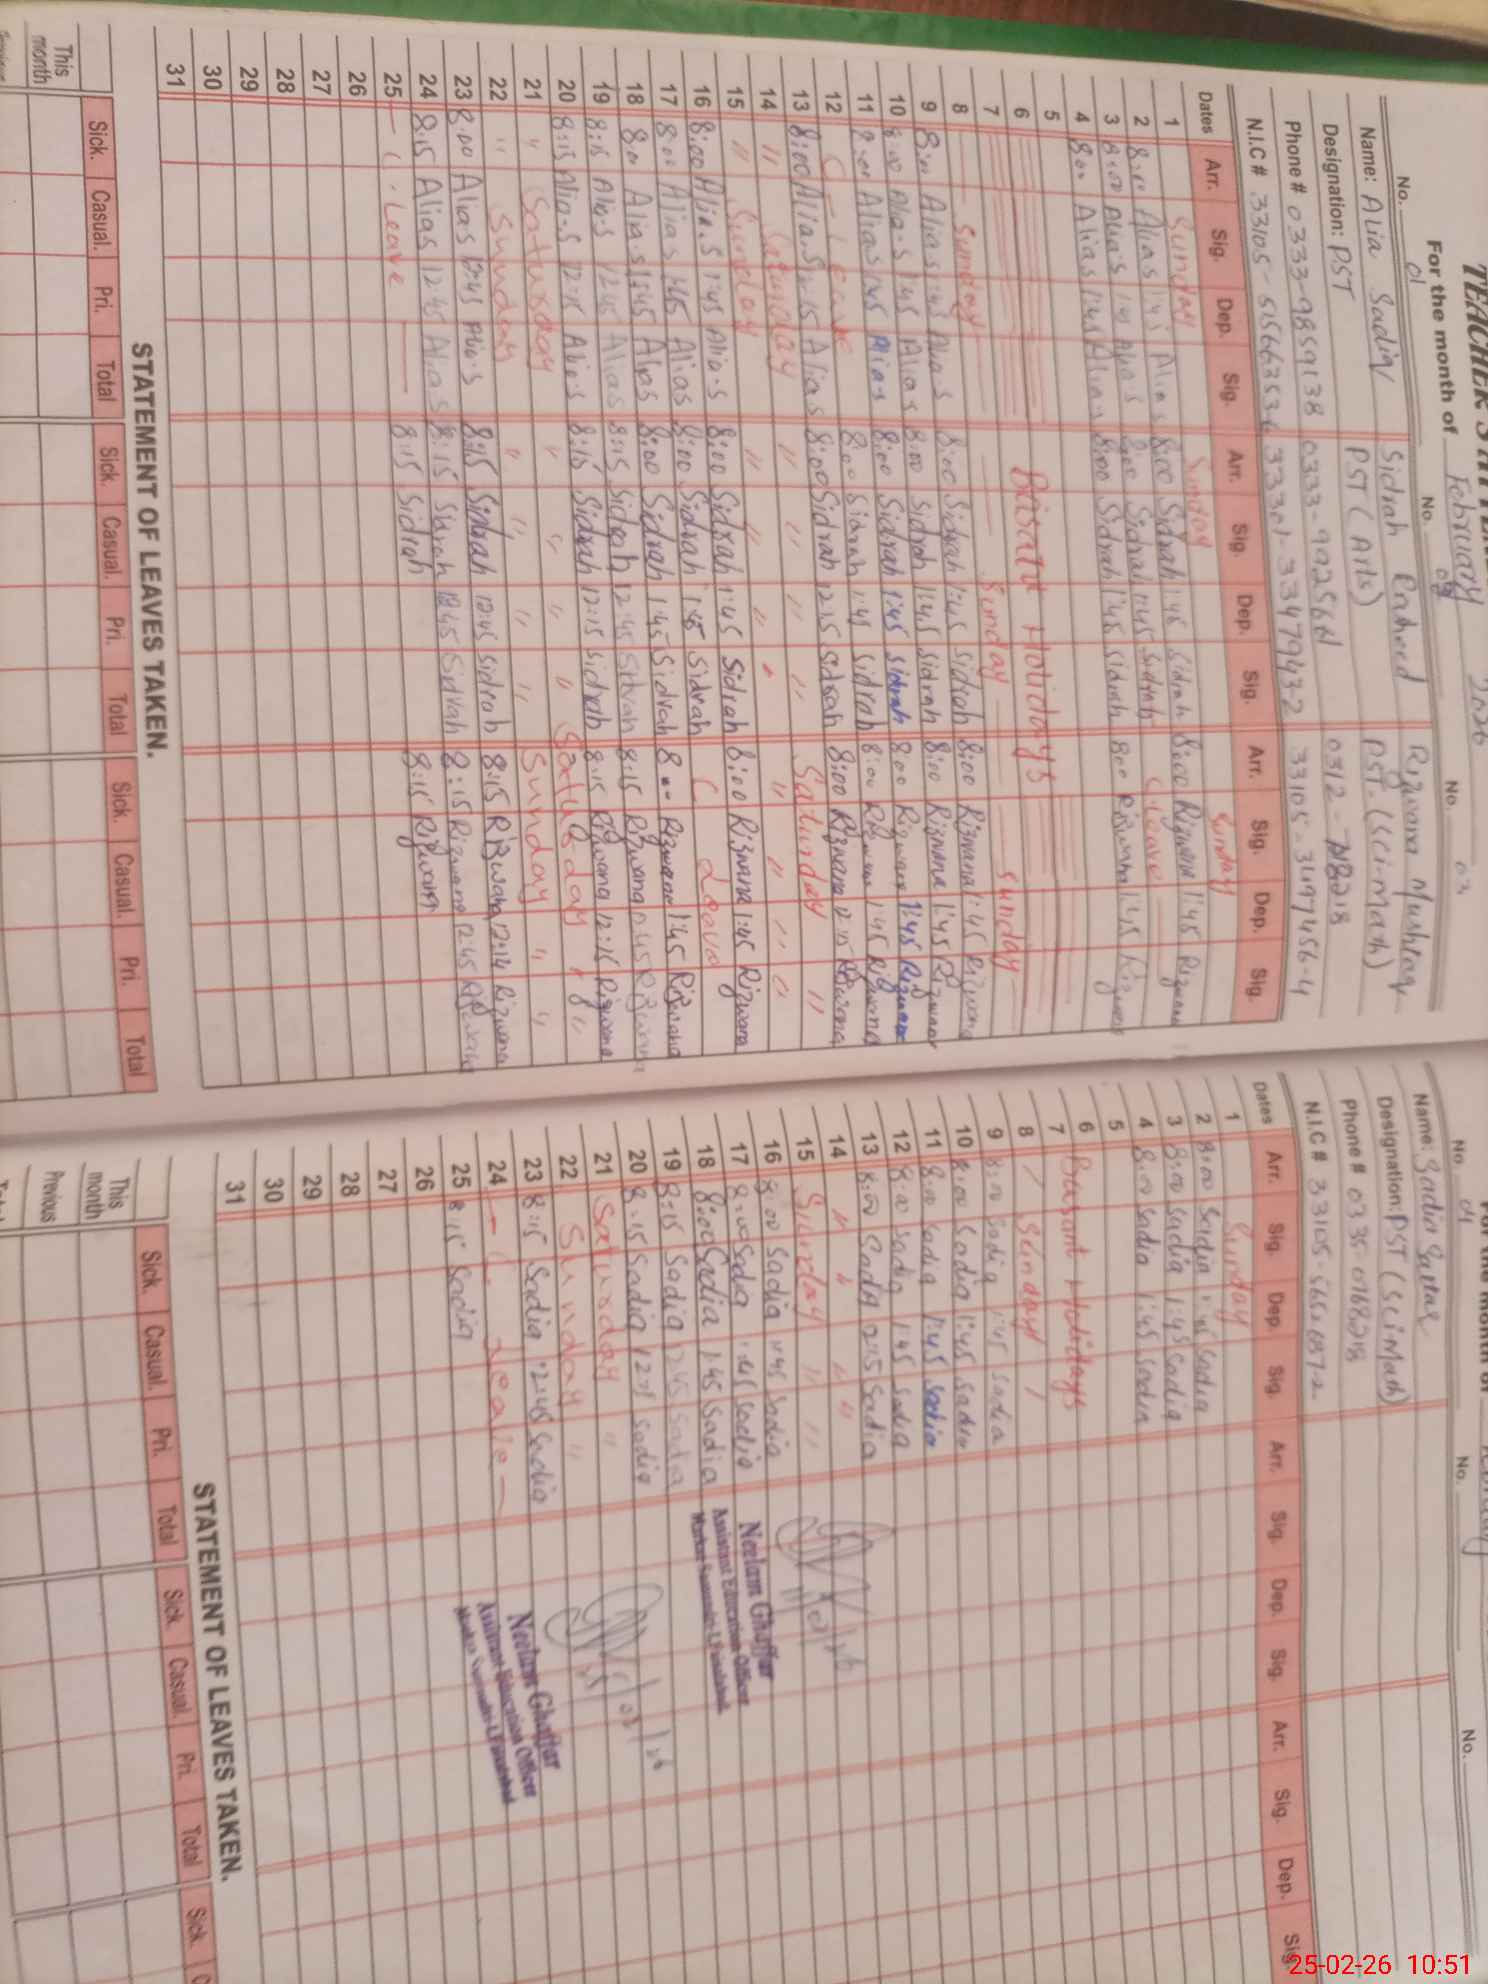 TEACHER'S
For the month of February 2026
No. 01 No. 02 No. 03
Name: Alia Sadiq Sidrah Rasheed Rizwana Mushtaq
Designation: PST PST (Arts) PST. (Sci-Math)
Phone # 0333-9859138 0333-
N.I.C #
Dates Arr. Sig. Dep. Sig. Arr. Sig. Dep. Sig. Arr. Sig. Dep. Sig.
1 Sunday Sunday Sunday
2 8:00 Alia S 1:45 Alia S 8:00 Sidrah 1:45 Sidrah 8:00 Rizwana 1:45 Rizwana
3 8:00 Alia S 1:45 Alia S 8:00 Sidrah 1:45 Sidrah C leave
4 8:00 Alia S 1:45 Alia S 8:00 Sidrah 1:45 Sidrah 8:00 Rizwana 1:45 Rizwana
5
6 Basant Holidays
7
8 Sunday Sunday Sunday
9 8:00 Alia S 1:45 Alia S 8:00 Sidrah 1:45 Sidrah 8:00 Rizwana 1:45 Rizwana
10 8:00 Alia S 1:45 Alia S 8:00 Sidrah 1:45 Sidrah 8:00 Rizwana 1:45 Rizwana
11 8:00 Alia S 1:45 Alia S 8:00 Sidrah 1:45 Sidrah 8:00 Rizwana 1:45 Rizwana
12 C Leave 8:00 Sidrah 1:45 Sidrah 8:00 Rizwana 1:45 Rizwana
13 8:00 Alia S Alia S 8:00 Sidrah 12:15 Sidrah 8:00 Rizwana 12:15 Rizwana
14 " Saturday " " " " Saturday "
15 " Sunday " " " " " "
16 8:00 Alia S 1:45 Alia S 8:00 Sidrah 1:45 Sidrah 8:00 Rizwana 1:45 Rizwana
17 8:00 Alia S 1:45 Alia S 8:00 Sidrah 1:45 Sidrah C Leave
18 8:00 Alia S 1:45 Alia S 8:00 Sidrah 1:45 Sidrah 8:00 Rizwana 1:45 Rizwana
19 8:15 Alia S 12:45 Alia S 8:15 Sidrah 12:45 Sidrah 8:15 Rizwana 12:45 Rizwana
20 8:15 Alia S 12:15 Alia S 8:15 Sidrah 12:15 Sidrah 8:15 Rizwana 12:15 Rizwana
21 " Saturday " " " Saturday " "
22 " Sunday " " " Sunday " "
23 8:00 Alia S 12:45 Alia S 8:15 Sidrah 12:45 Sidrah 8:15 Rizwana 12:14 Rizwana
24 8:15 Alia S 12:45 Alia S 8:15 Sidrah 12:45 Sidrah 8:15 Rizwana 12:45 Rizwana
25 C. Leave 8:15 Sidrah 8:15 Rizwana
26
27
28
29
30
31
STATEMENT OF LEAVES TAKEN.
Sick. Casual. Pri. Total Sick. Casual. Pri. Total Sick. Casual. Pri. Total
This month
No. 04 No. No.
Name: Sadia Sattar
Designation: PST (Sci Math)
Phone #
N.I.C #
Dates Arr. Sig. Dep. Sig. Arr. Sig. Dep. Sig. Arr. Sig. Dep. Sig.
1 Sunday
2 8:00 Sadia 1:45 Sadia
3 8:00 Sadia 1:45 Sadia
4 8:00 Sadia 1:45 Sadia
5
6 Basant Holidays
7
8 Sunday
9 8:00 Sadia 1:45 Sadia
10 8:00 Sadia 1:45 Sadia
11 8:00 Sadia 1:45 Sadia
12 8:00 Sadia 1:45 Sadia
13 8:00 Sadia Sadia
14 " " " "
15 Sunday " "
16 8:00 Sadia 1:45 Sadia
17 8:00 Sadia 1:45 Sadia
18 8:00 Sadia 1:45 Sadia
19 8:15 Sadia 12:45 Sadia
20 8:15 Sadia Sadia
21 Saturday "
22 Sunday "
23 8:15 Sadia 12:45 Sadia
24 C. Leave
25 8:15 Sadia
26
27
28
29
30
31
Neelam Ghaffar
Assistant Education Officer
Neelam Ghaffar
Assistant Education Officer
STATEMENT OF LEAVES TAKEN.
Sick. Casual. Pri. Total Sick. Casual. Pri. Total Sick.
This month
Previous
25-02-26 10:51